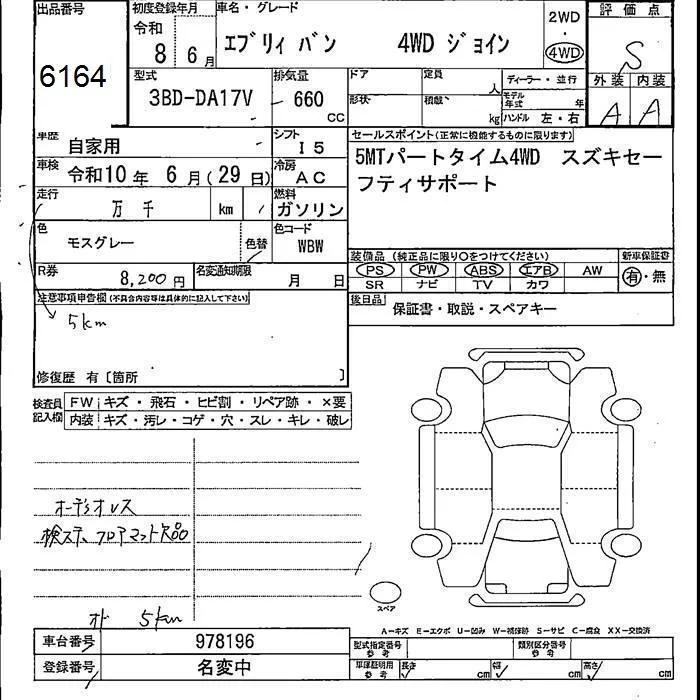 出品番号
6164
初度登録年月
令和
8 6 月
車名・グレード
エブリィ バン 4WD ジョイン
2WD
・
4WD
評価点
S
外装 内装
A A
型式
3BD-DA17V
排気量
660
CC
ドア
定員
人
ディーラー・並行
形状
積載
kg
モデル年式
年
ハンドル 左・右
車歴
自家用
シフト
I5
車検
令和10 年 6 月(29 日)
冷房
AC
走行
万 千
km
燃料
ガソリン
色
モスグレー
色替
色コード
WBW
R券
8,200 円
名変通知期限
月 日
セールスポイント(正常に機能するものに限ります)
5MTパートタイム4WD スズキセー
フティサポート
装備品(純正品に限り○をつけてください)
新車保証書
PS PW ABS エアB AW
SR ナビ TV カワ
有・無
後日品
保証書・取説・スペアキー
注意事項申告欄(不具合内容等は具体的に記入して下さい)
5km
修復歴 有〔箇所 〕
検査員
記入欄
FW キズ・飛石・ヒビ割・リペア跡・×要
内装 キズ・汚レ・コゲ・穴・スレ・キレ・破レ
オーディオレス
検ステ、フロアマット
オド 5km
スペア
A−キズ E−エクボ U−凹み W−補修跡 S−サビ C−腐食 XX−交換済
車台番号
978196
登録番号
名変中
型式指定番号
参考
類別区分番号
参考
車庫証明用
参考
長さ cm
幅 cm
高さ cm